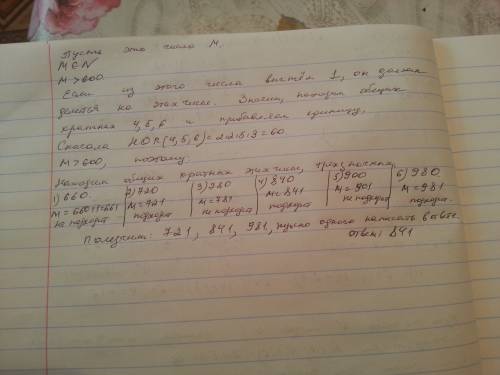 Пусть это число M.
M ∈ N
M > 600.
Если из этого числа вычтем 1, он должен
делится на этих чисе. Значит, находим общих
кратных 4, 5, 6 и прибавляем единицу.
Сначала НОК(4,5,6)=2·2·5·3=60
M > 600, поэтому
Находим общих кратных этих чисел, трёхзначных.
1) 660 2) 720 3) 780 4) 840 5) 900 6) 980
M = 660+1=661 M = 721 M = 781 M = 841 M = 901 M = 981
не подходит подходит не подходит подходит не подходит подходит.
Получим: 721, 841, 981, нужно одного написать в ответе.
Ответ: 841